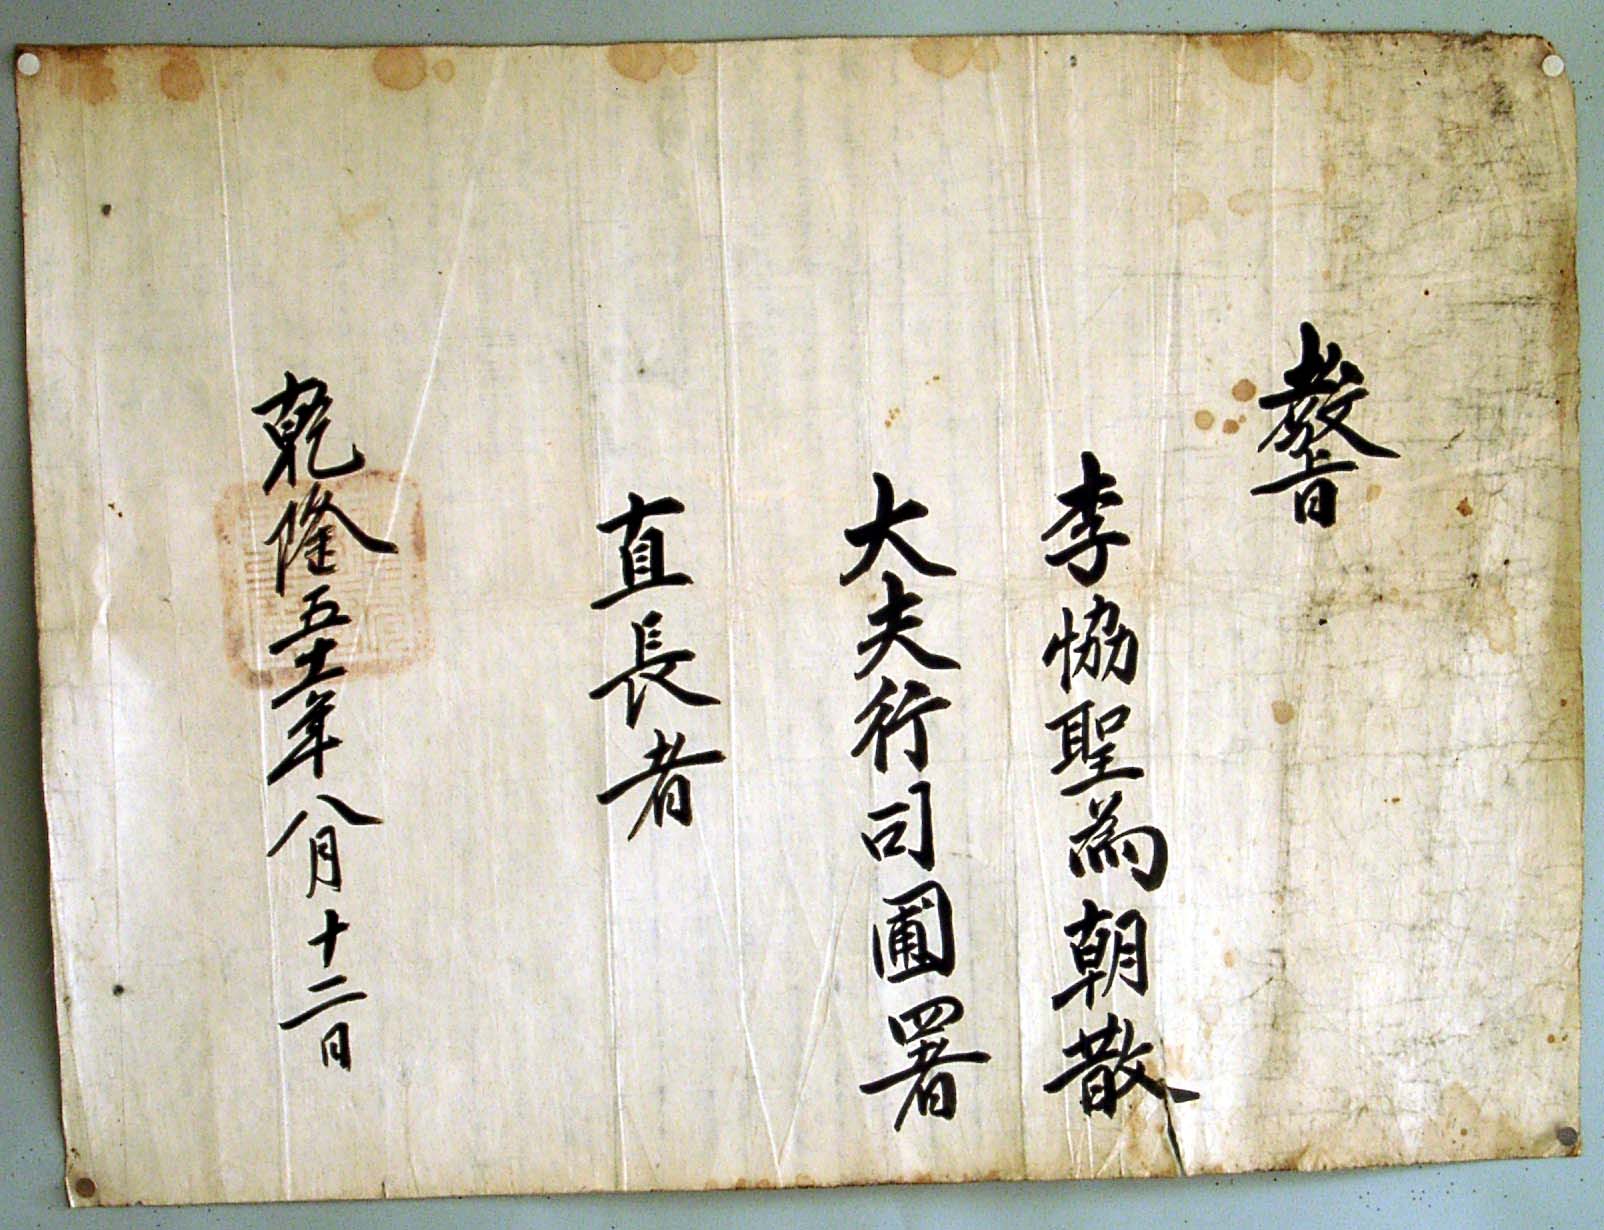 教旨
李恊聖為朝散
大夫行司圃署
直長者
乾隆五十一年八月十二日